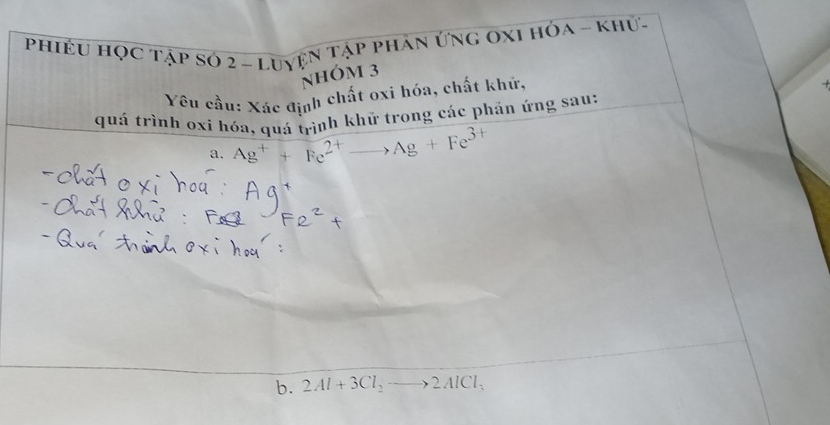 PHIẾU HỌC TẬP SỐ 2 – LUYỆN TẬP PHẢN ỨNG OXI HÓA – KHỬ-
NHÓM 3
Yêu cầu: Xác định chất oxi hóa, chất khử,
quá trình oxi hóa, quá trình khử trong các phản ứng sau:
a. Ag⁺ + Fe²⁺ ⟶ Ag + Fe³⁺
- Chất oxi hoá : Ag⁺
- Chất khử : Fe²⁺
- Quá trình oxi hoá :
b. 2Al + 3Cl₂ ⟶ 2AlCl₃